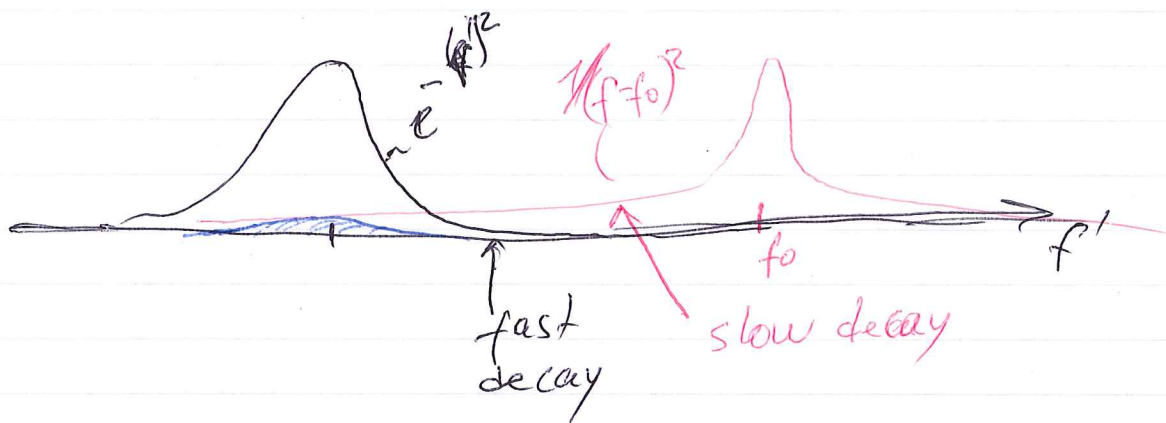 ~ e^-(f')^2
1/(f-f0)^2
f0
f'
fast
decay
slow decay